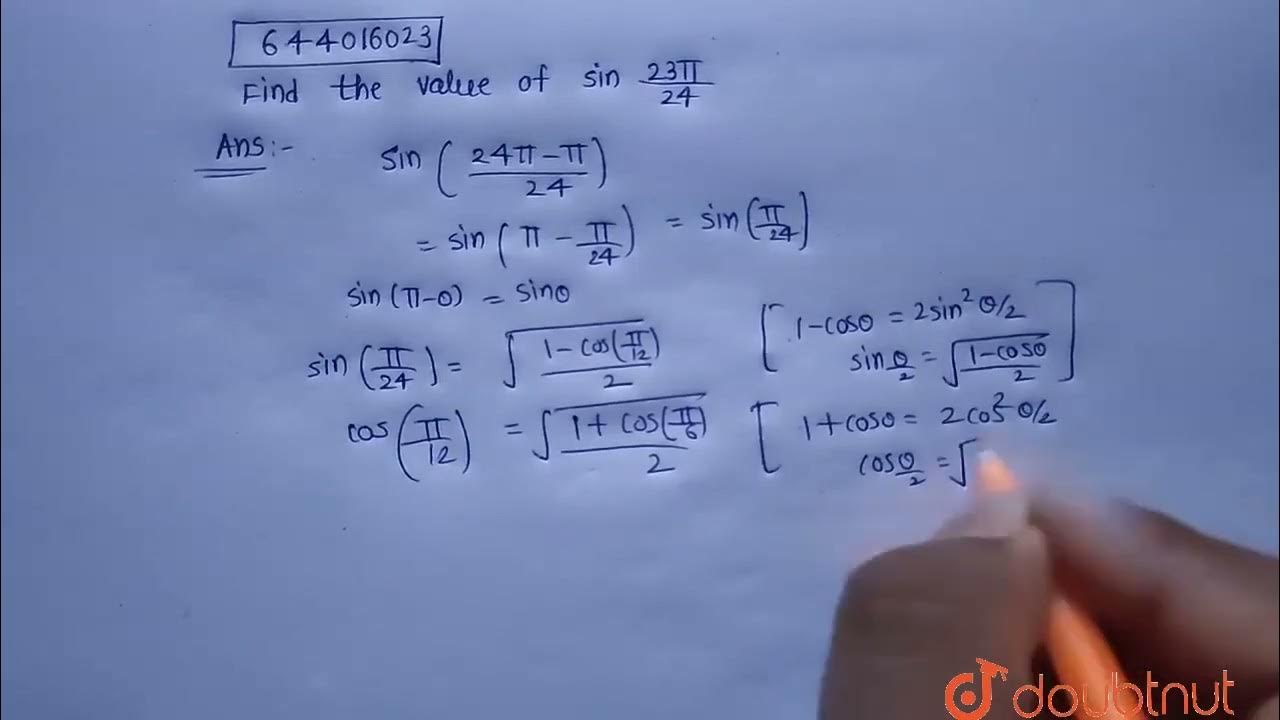 644016023
Find the value of sin 23π/24
Ans:- sin (24π-π/24)
= sin (π - π/24) = sin (π/24)
sin (π-θ) = sinθ
sin (π/24) = √(1-cos(π/12)/2)
[1-cosθ = 2sin² θ/2
sin θ/2 = √(1-cosθ/2)]
cos (π/12) = √(1+cos(π/6)/2)
[1+cosθ = 2cos² θ/2
cos θ/2 = √
doubtnut